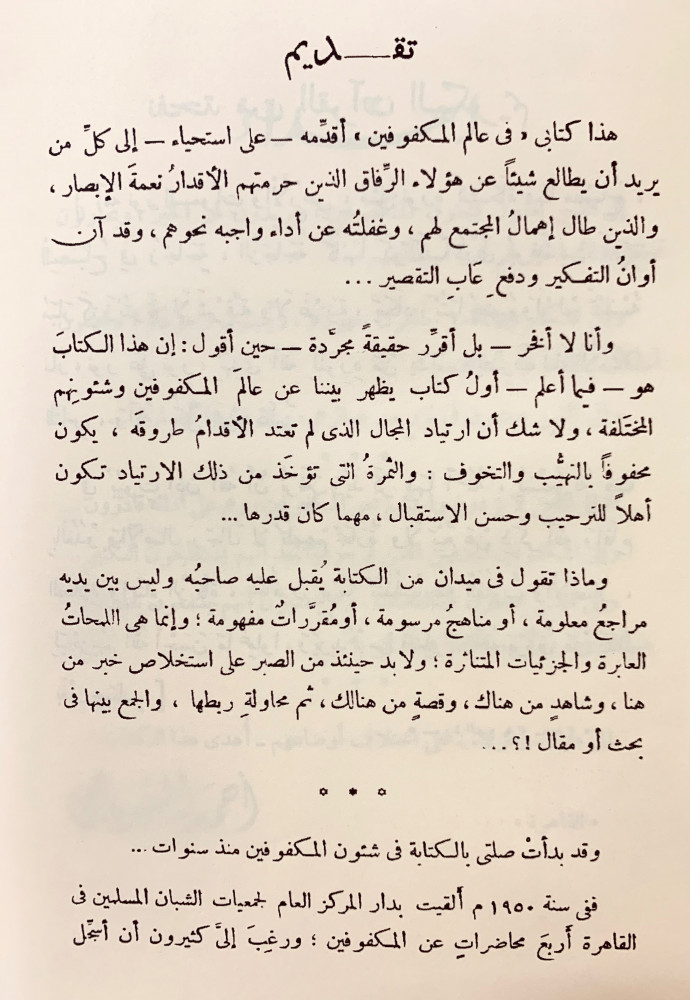 تقـــديم
هذا كتابى « فى عالم المكفوفين » أقدِّمه — على استحياء — إلى كلِّ من
يريد أن يطالع شيئاً عن هؤلاء الرِّفاق الذين حرمتهم الأقدارُ نعمةَ الإبصار ،
والذين طال إهمالُ المجتمع لهم ، وغفلتُه عن أداء واجبه نحوهم ، وقد آن
أوانُ التفكير ودفع ِ عَابِ التقصير ...
وأنا لا أفخر — بل أقرِّر حقيقةً مجرَّدة — حين أقول : إن هذا الكتابَ
هو — فيما أعلم — أولُ كتاب يظهر بيننا عن عالمَ المكفوفين وشئونِهم
المختَلفة ، ولا شك أن ارتياد المجال الذى لم تعتد الأقدامُ طروقَه ، يكون
محفوفاً بالتهيُّب والتخوف : والثمرةُ التى تؤخَذ من ذلك الارتياد تكون
أهلاً للترحيب وحسن الاستقبال ، مهما كان قدرها ...
وماذا تقول فى ميدان من الكتابة يُقبل عليه صاحبُه وليس بين يديه
مراجعُ معلومة ، أو مناهجُ مرسومة ، أومُقرَّراتٌ مفهومة ؛ وإنما هى اللمحاتُ
العابرة والجزئيات المتناثرة ؛ ولابد حينئذ من الصبر على استخلاص خبر من
هنا ، وشاهدٍ من هناك ، وقصةٍ من هنالك ، ثم محاولةِ ربطها ، والجمع بينها فى
بحث أو مقال !؟ ...
* * *
وقد بدأتْ صلتى بالكتابة فى شئون المكفوفين منذ سنوات ...
ففى سنة ١٩٥٠ م ألقيت بدار المركز العام لجمعيات الشبان المسلمين فى
القاهرة أربعَ محاضراتٍ عن المكفوفين ؛ ورغِبَ إلىَّ كثيرون أن أسجِّل